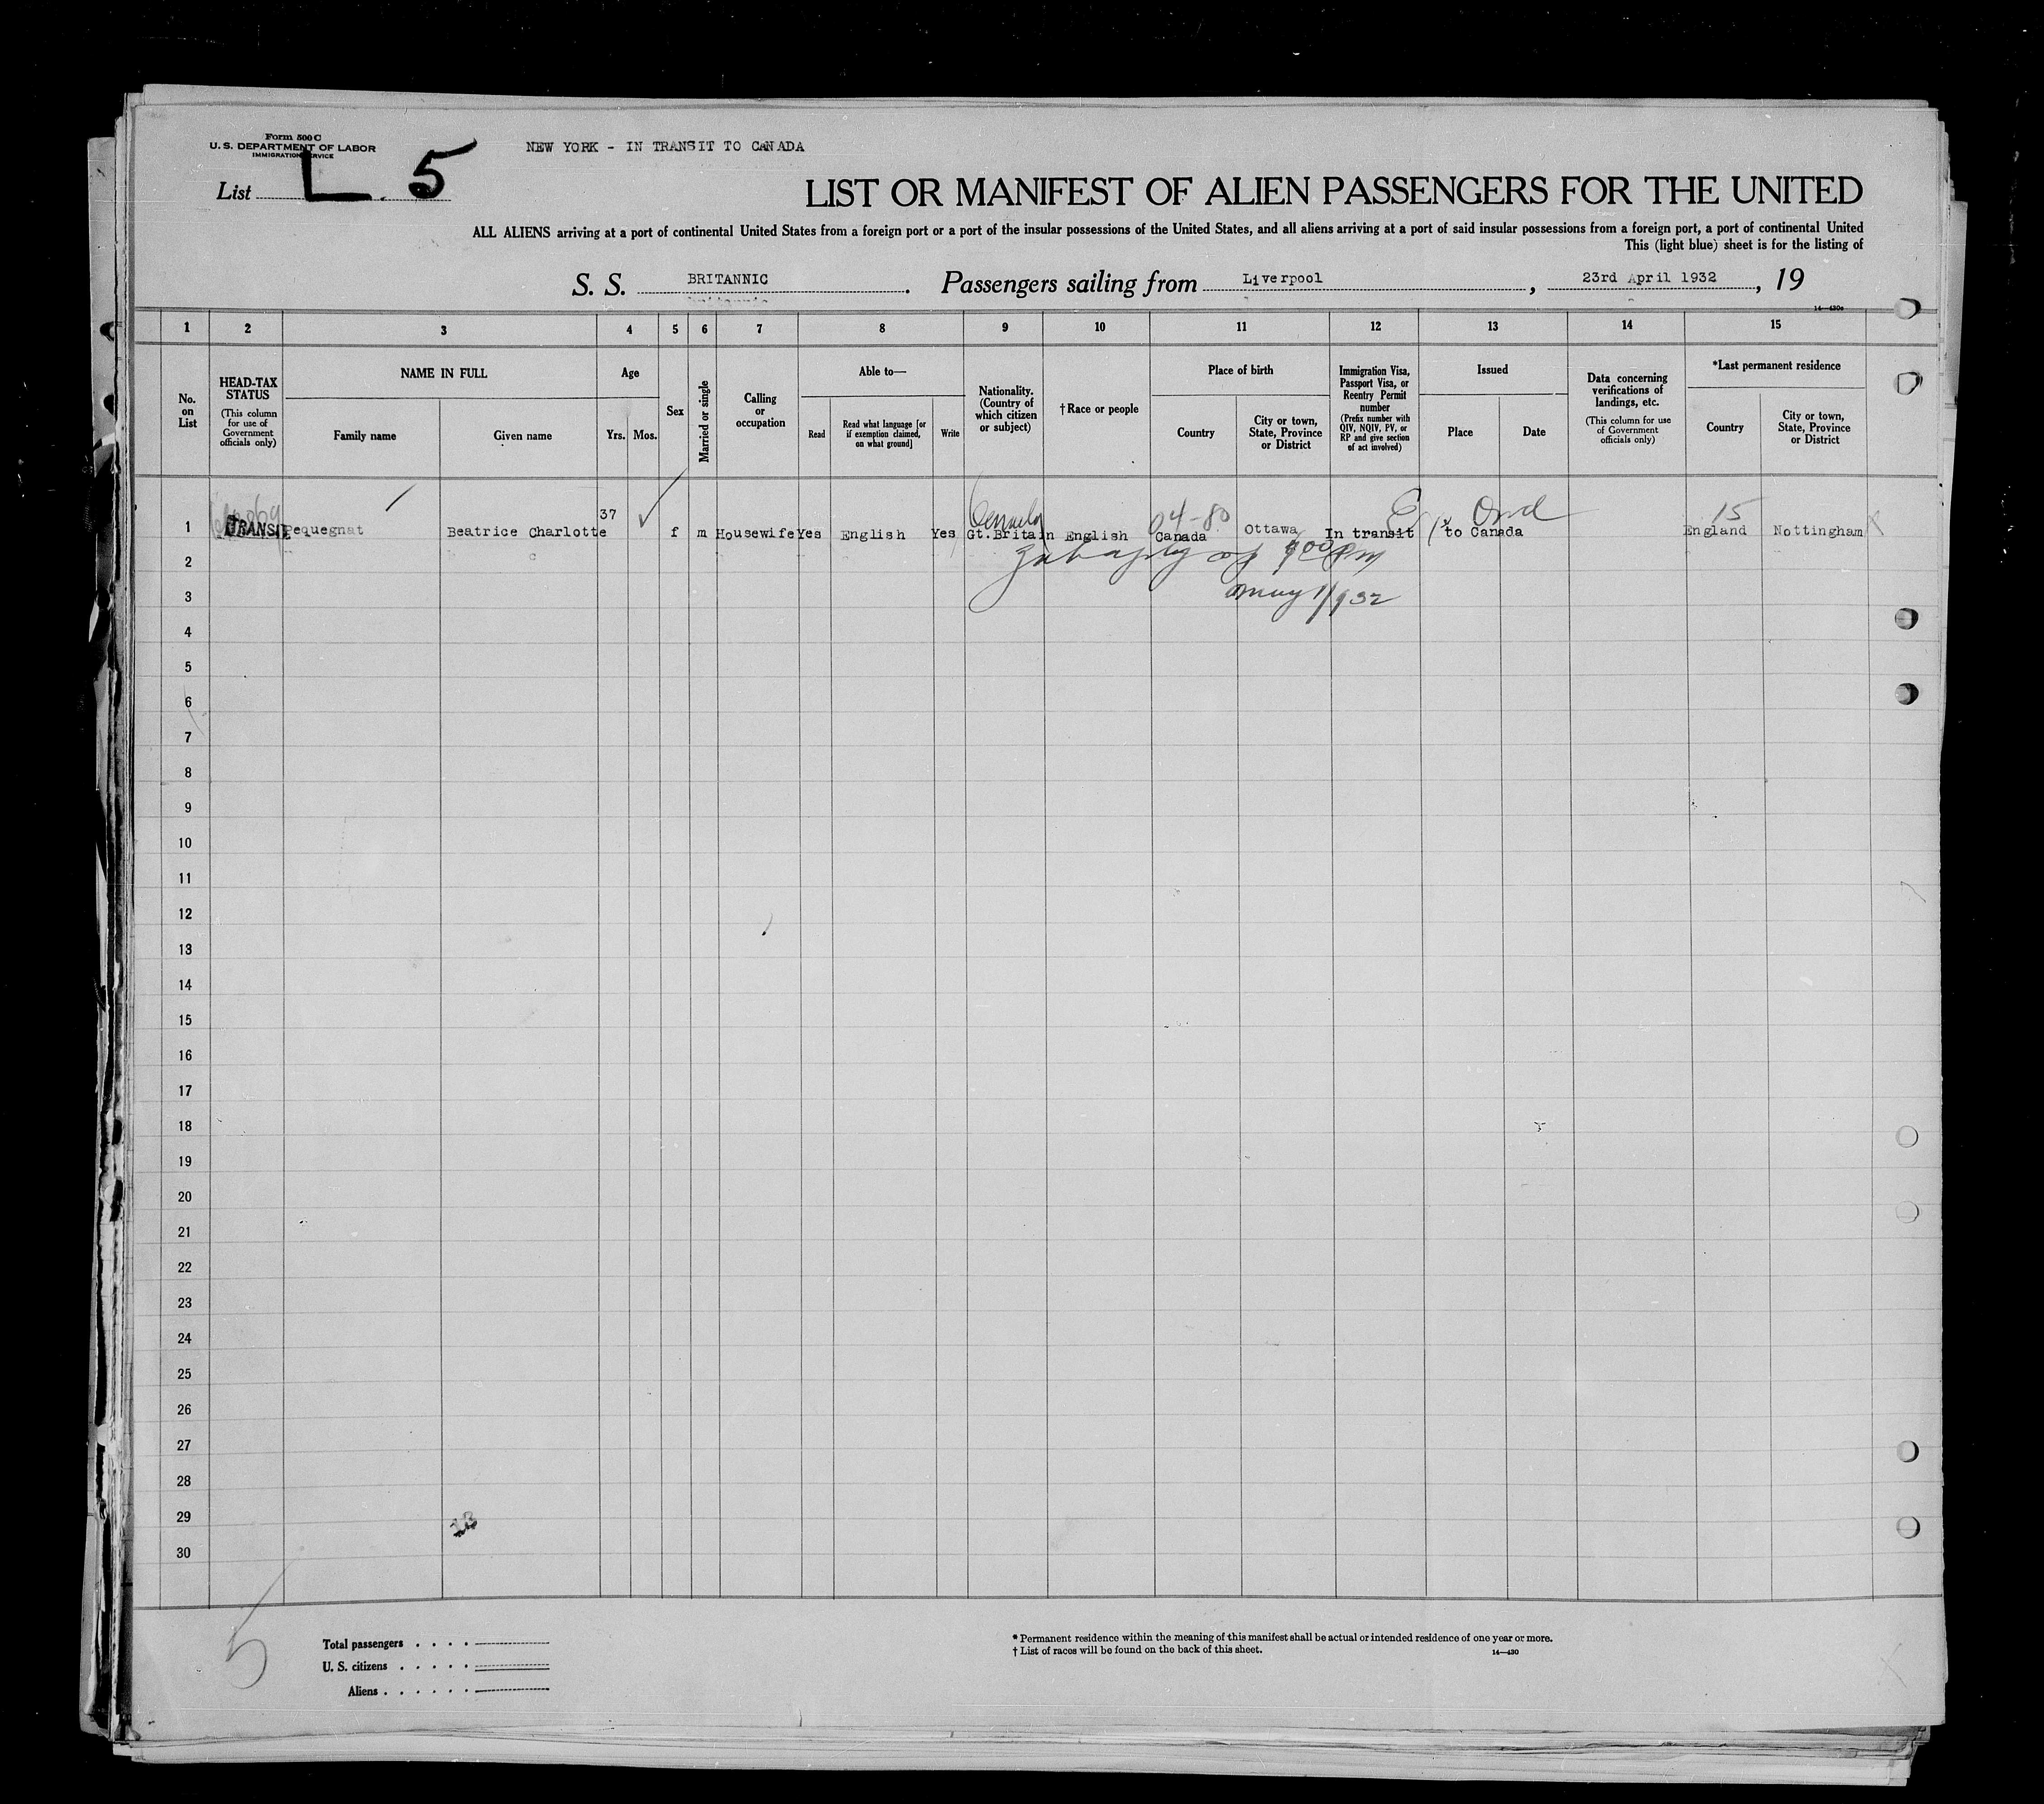 Form 500 C
U. S. DEPARTMENT OF LABOR
IMMIGRATION SERVICE
NEW YORK - IN TRANSIT TO CANADA
List L. 5
LIST OR MANIFEST OF ALIEN PASSENGERS FOR THE UNITED
ALL ALIENS arriving at a port of continental United States from a foreign port or a port of the insular possessions of the United States, and all aliens arriving at a port of said insular possessions from a foreign port, a port of continental United
This (light blue) sheet is for the listing of
S. S. BRITANNIC. Passengers sailing from Liverpool, 23rd April 1932, 19
14—430c
1 2 3 4 5 6 7 8 9 10 11 12 13 14 15
No. on List
HEAD-TAX STATUS
(This column for use of Government officials only)
NAME IN FULL
Family name
Given name
Age
Yrs. Mos.
Sex
Married or single
Calling or occupation
Able to—
Read
Read what language [or if exemption claimed, on what ground]
Write
Nationality. (Country of which citizen or subject)
†Race or people
Place of birth
Country
City or town, State, Province or District
Immigration Visa, Passport Visa, or Reentry Permit number
(Prefix number with QIV, NQIV, PV, or RP and give section of act involved)
Issued
Place
Date
Data concerning verifications of landings, etc.
(This column for use of Government officials only)
*Last permanent residence
Country
City or town, State, Province or District
Canada 04-80 15
1 TRANSIT Pequegnat Beatrice Charlotte 37 f m Housewife Yes English Yes Gt.Britain English Canada Ottawa In transit to Canada England Nottingham
2
3 May 1/932
4
5
6
7
8
9
10
11
12
13
14
15
16
17
18
19
20
21
22
23
24
25
26
27
28
29
30
5
Total passengers
U. S. citizens
Aliens
* Permanent residence within the meaning of this manifest shall be actual or intended residence of one year or more.
† List of races will be found on the back of this sheet.
14—430